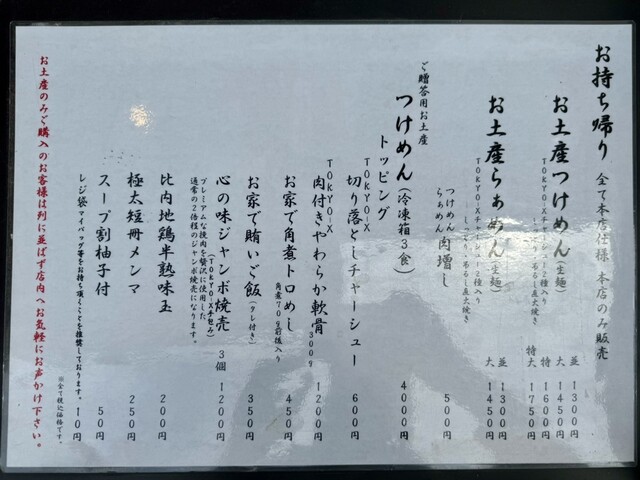 お持ち帰り 全て本店仕様 本店のみ販売
お土産つけめん(生麺) 並 1300円
TOKYO-Xチャーシュー2種入り 大 1450円
しっとり・吊るし直火焼き 特 1600円
特大 1750円
お土産らぁめん(生麺) 並 1300円
TOKYO-Xチャーシュー2種入り 大 1450円
しっとり・吊るし直火焼き
つけめん
らぁめん 肉増し 500円
ご贈答用お土産
つけめん(冷凍箱3食) 4000円
トッピング
TOKYO-X
切り落としチャーシュー 600円
TOKYO-X
肉付きやわらか軟骨 300g 1200円
お家で角煮トロめし 450円
角煮70g前後入り
お家で賄いご飯(タレ付き) 350円
心の味ジャンボ焼売(TOKYO-X手包み) 3個 1200円
プレミアムな挽肉を贅沢に使用した
通常の2倍程のジャンボ焼売になります。
比内地鶏半熟味玉 200円
極太短冊メンマ 250円
スープ割柚子付 50円
レジ袋マイバッグ等をお持ち頂くくらどを推奨しております。 10円
※全て税込価格です。
お土産のみご購入のお客様は列に並ばず店内へお気軽にお声かけ下さい。